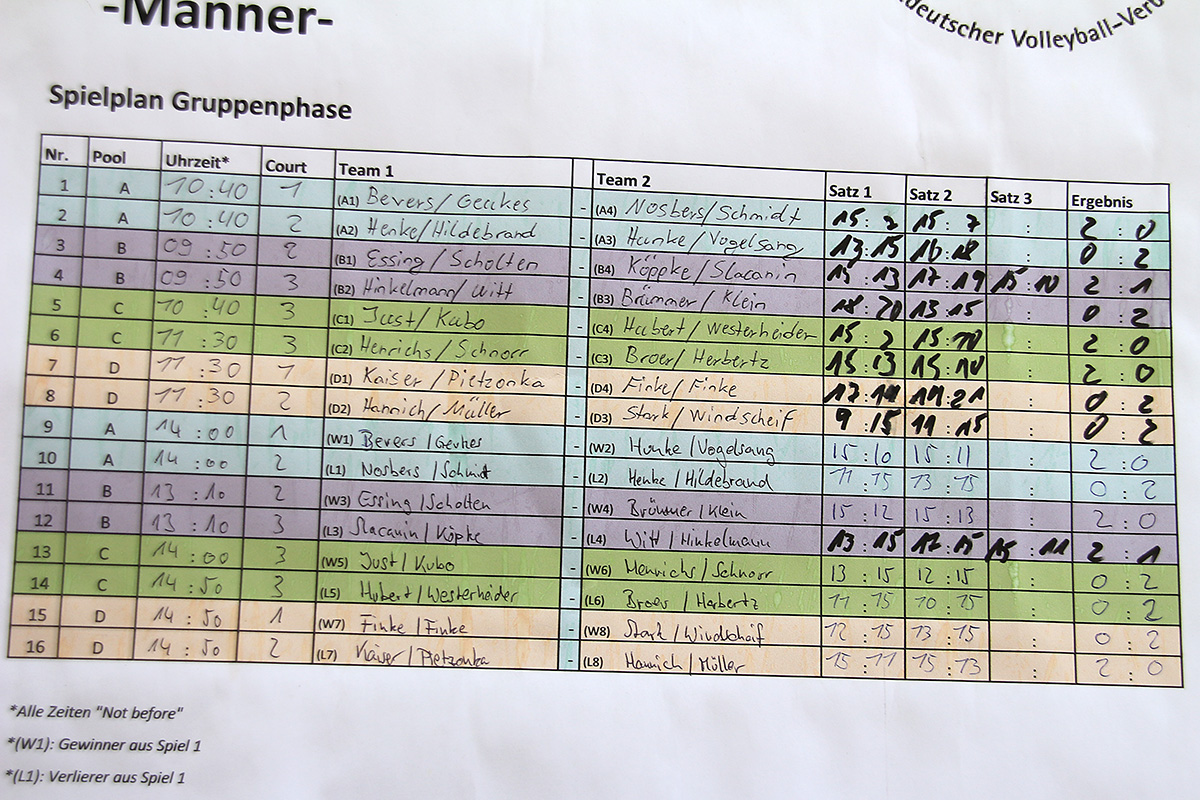 -Männer-
deutscher Volleyball-Verb
Spielplan Gruppenphase
Nr. Pool Uhrzeit* Court Team 1 Team 2 Satz 1 Satz 2 Satz 3 Ergebnis
1 A 10:40 1 (A1) Bevers/Geukes - (A4) Nosbers/Schmidt 15:2 15:7 : 2:0
2 A 10:40 2 (A2) Henke/Hildebrand - (A3) Hunke/Vogelsang 13:15 16:18 : 0:2
3 B 09:50 2 (B1) Essing/Scholten - (B4) Köppke/Slacanin 15:13 17:19 15:10 2:1
4 B 09:50 3 (B2) Hinkelmann/Witt - (B3) Brümmer/Klein 18:20 13:15 : 0:2
5 C 10:40 3 (C1) Just/Kubo - (C4) Hubert/Westerheider 15:2 15:10 : 2:0
6 C 11:30 3 (C2) Henrichs/Schnorr - (C3) Broer/Herbertz 15:13 15:10 : 2:0
7 D 11:30 1 (D1) Kaiser/Pietzonka - (D4) Finke/Finke 17:19 19:21 : 0:2
8 D 11:30 2 (D2) Hannich/Müller - (D3) Stark/Windscheif 9:15 11:15 : 0:2
9 A 14:00 1 (W1) Bevers/Geukes - (W2) Hunke/Vogelsang 15:10 15:11 : 2:0
10 A 14:00 2 (L1) Nosbers/Schmidt - (L2) Henke/Hildebrand 11:15 13:15 : 0:2
11 B 13:10 2 (W3) Essing/Scholten - (W4) Brümmer/Klein 15:12 15:13 : 2:0
12 B 13:10 3 (L3) Slacanin/Köpke - (L4) Witt/Hinkelmann 13:15 17:15 15:11 2:1
13 C 14:00 3 (W5) Just/Kubo - (W6) Henrichs/Schnorr 13:15 12:15 : 0:2
14 C 14:50 3 (L5) Hubert/Westerheider - (L6) Broer/Herbertz 11:15 10:15 : 0:2
15 D 14:50 1 (W7) Finke/Finke - (W8) Stark/Windscheif 12:15 13:15 : 0:2
16 D 14:50 2 (L7) Kaiser/Pietzonka - (L8) Hannich/Müller 15:11 15:13 : 2:0
*Alle Zeiten "Not before"
*(W1): Gewinner aus Spiel 1
*(L1): Verlierer aus Spiel 1